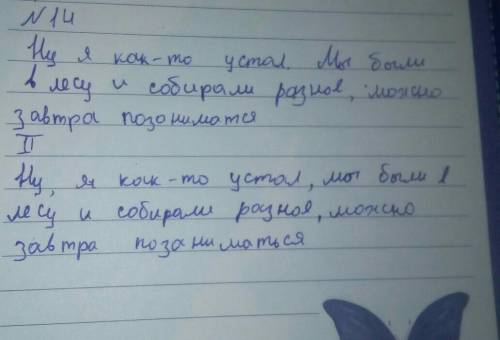 N14
Ну я как-то устал. Мы были
в лесу и собирали разное, можно
завтра позаниматся
II
Ну, я как-то устал, мы были в
лесу и собирали разное, можно
завтра позаниматься